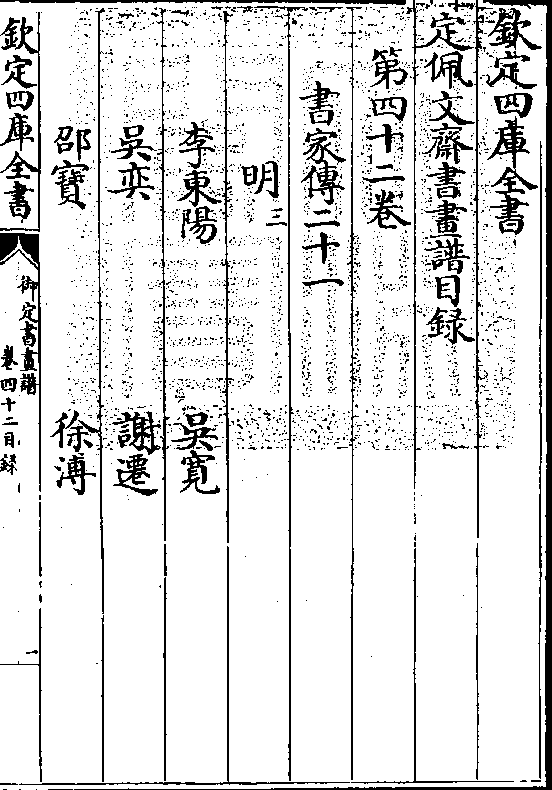 欽定四庫全書
定佩文齋書畫譜目録
第四十二卷
書家傳二十一
明三
李東陽 吳寛
吳奕 謝遷
邵寶 徐溥
欽定四庫全書
御定書畫譜
卷四十二目録
一